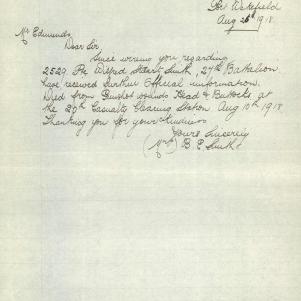 Port Wakefield
Aug 26th 1918
Mr Edmunds
Dear Sir
Since wiring you regarding
2529. Pte Wilfred Stewart Smith, 27th Battalion
have received further Official information.
Died from Gunshot wounds Head & Buttocks at
the 20th Casualty Clearing Station Aug 10th 1918
Thanking you for your kindness
Yours Sincerely
(Mrs) B. E. Smith